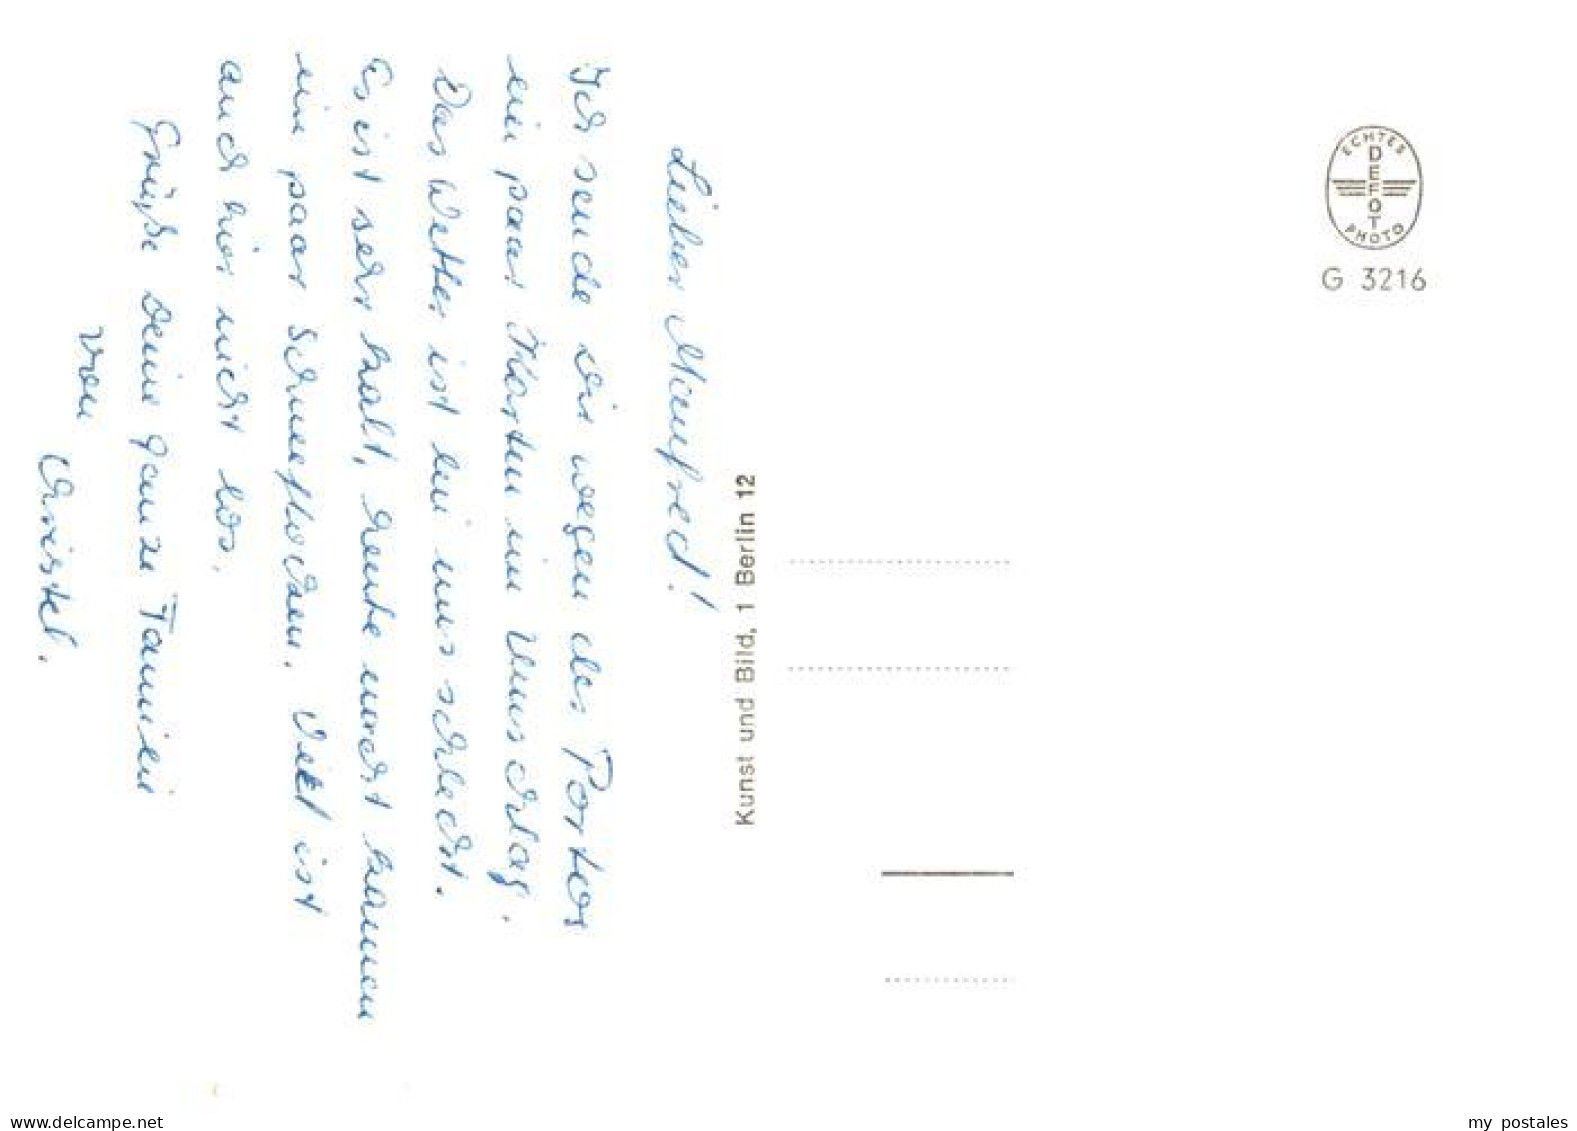 Lieber Manfred!
Ich sende dir wegen des Portos
ein paar Karten im Umschlag.
Das Wetter ist bei uns schlecht.
Es ist sehr kalt, heute nacht kamen
ein paar Schneeflocken. Viel ist
auch hier nicht los.
Grüße Deine ganze Familie
von
Christel.
Kunst und Bild, 1 Berlin 12
ECHTES
DEFOT
PHOTO
G 3216
delcampe.net
my postales